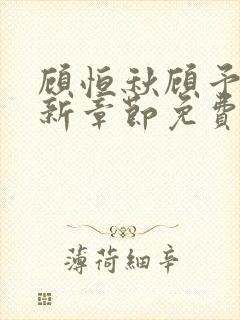 顾恒秋顾予
新章节免费
薄荷細辛